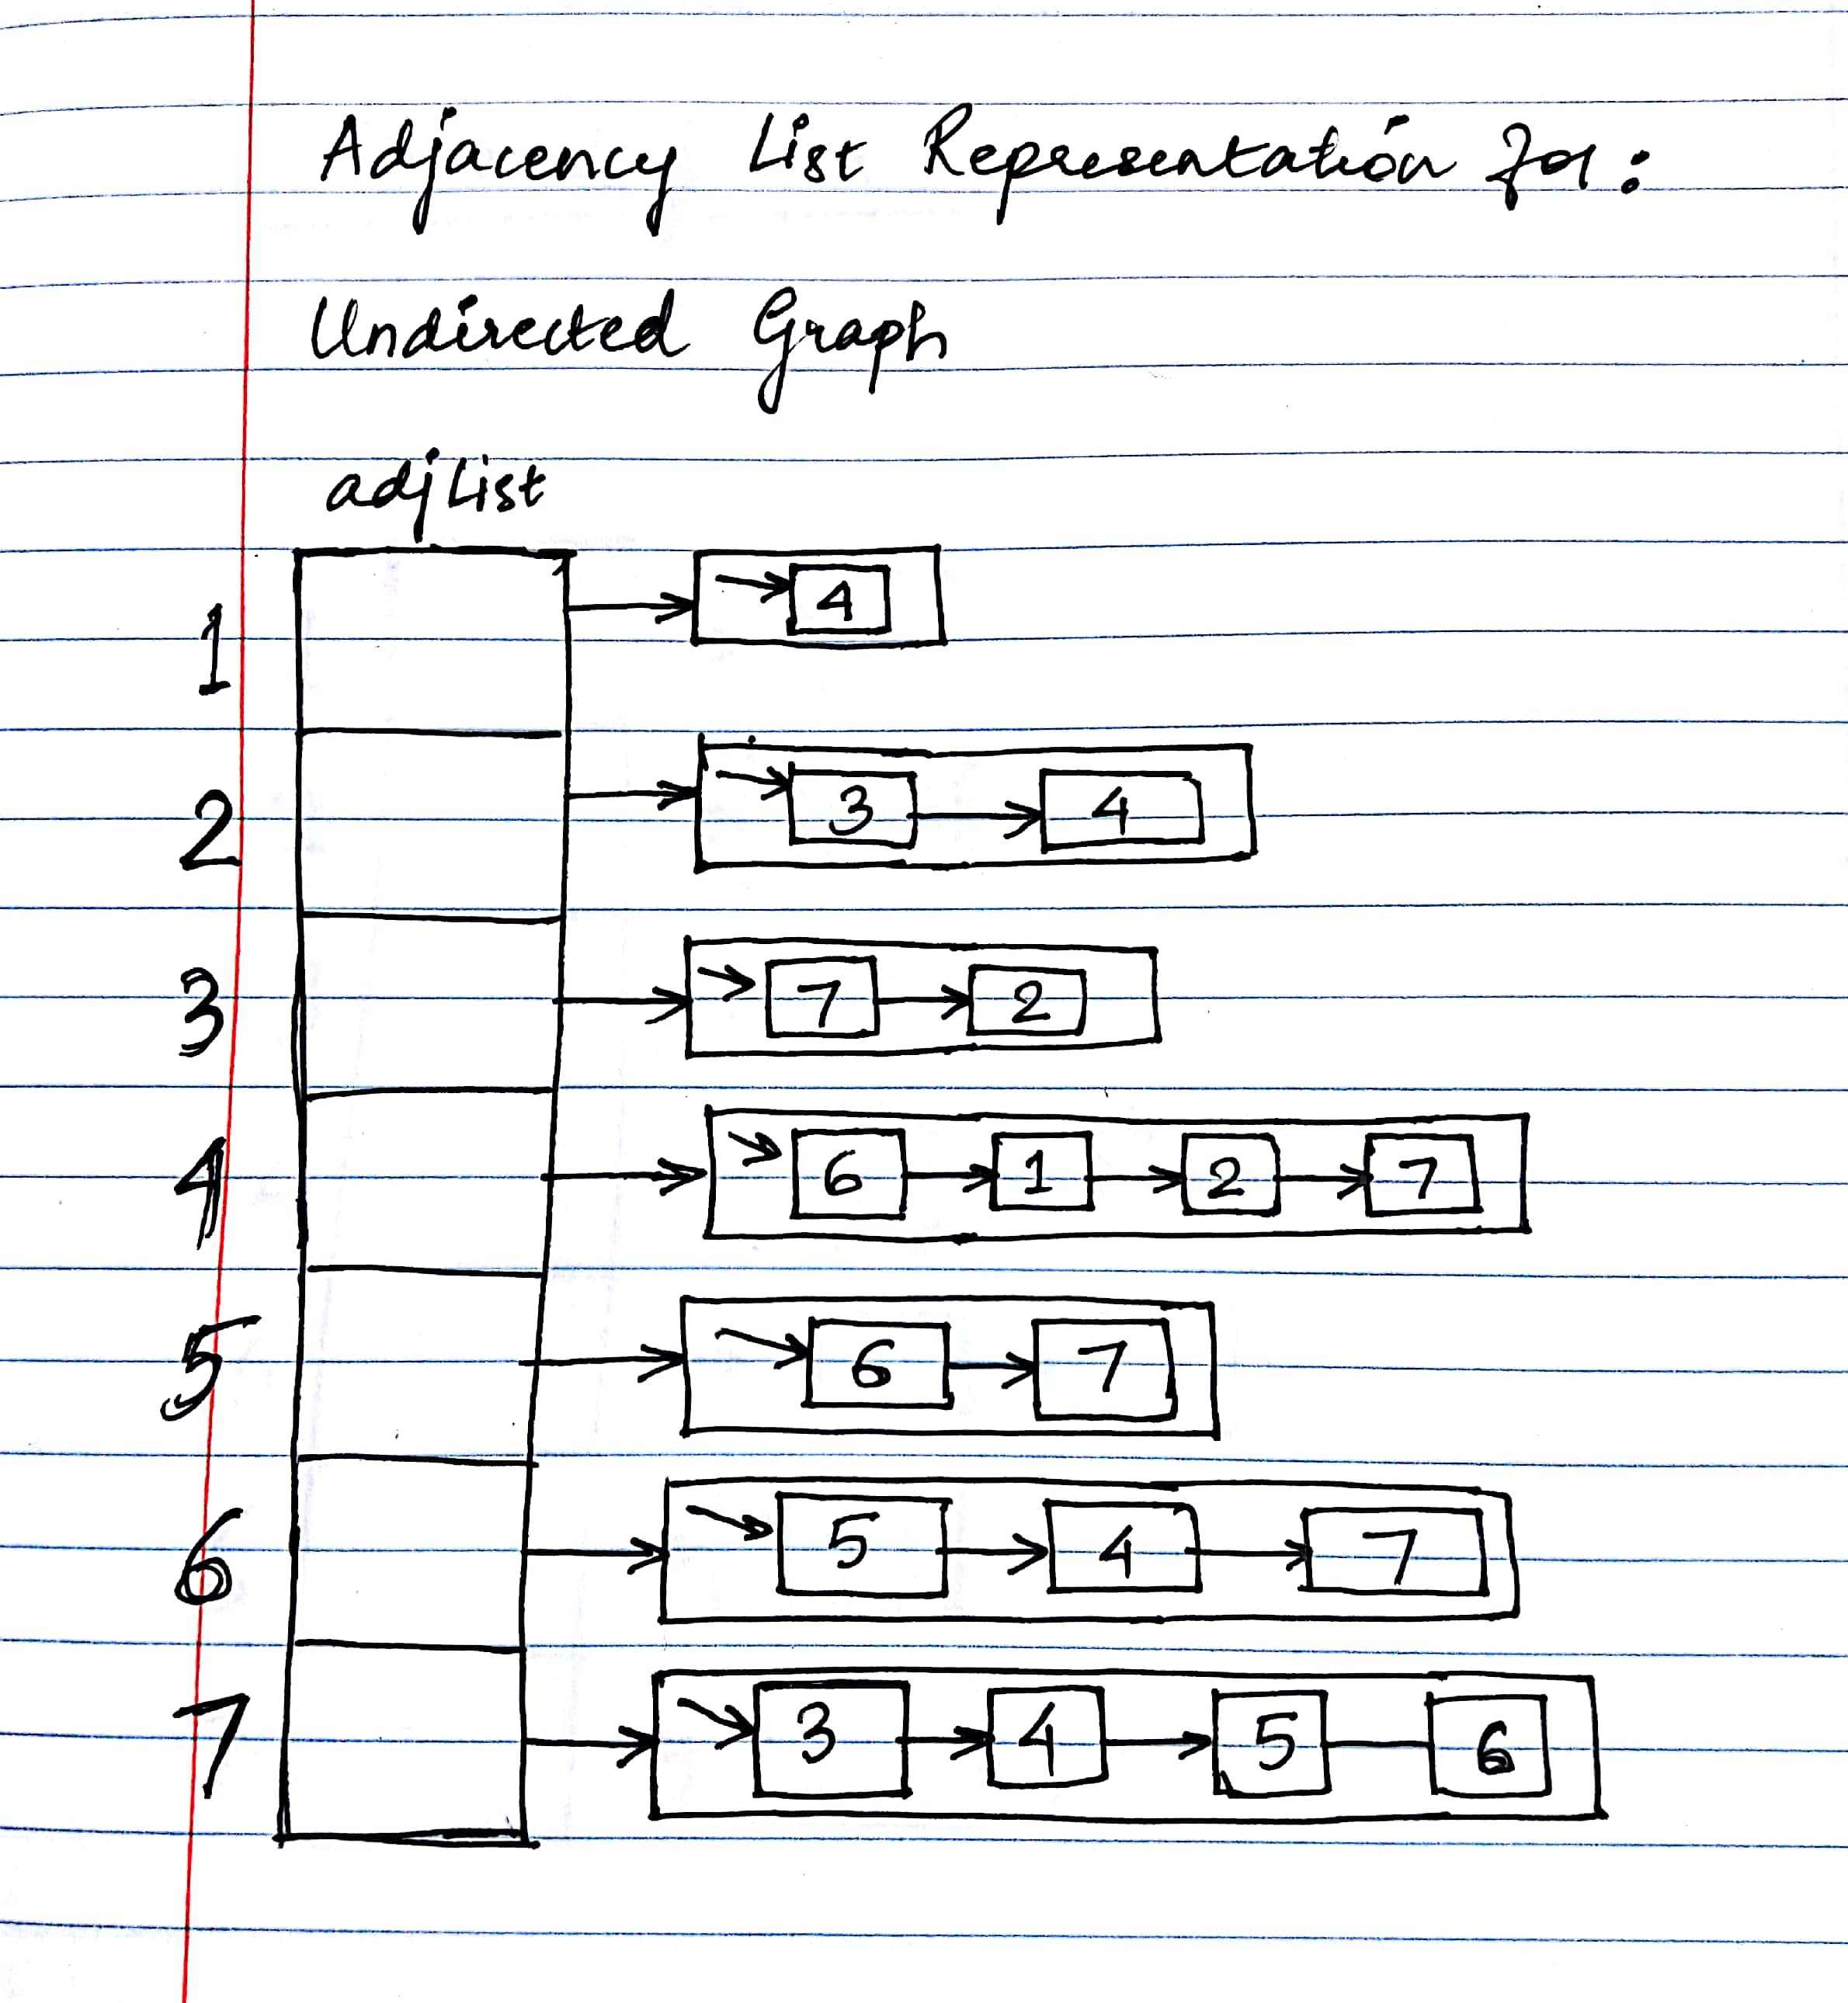 Adjacency List Representation for:
Undirected Graph
adjList
1 4
2 3 4
3 7 2
4 6 1 2 7
5 6 7
6 5 4 7
7 3 4 5 6